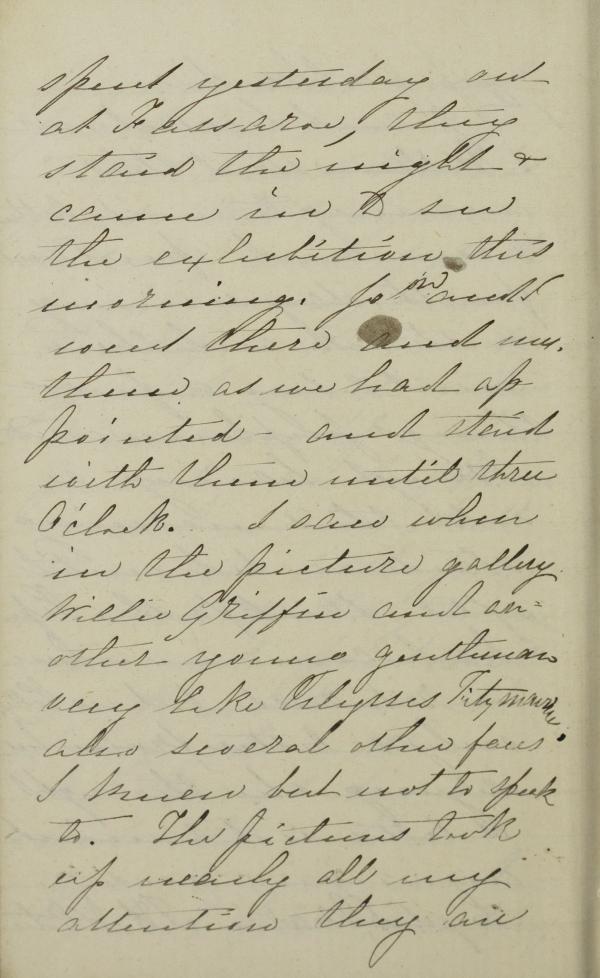 spent yesterday out
at Fassaroe, they
staid the night &
came in to see
the exhibition this
morning. Jo^n and I
went there and met
them as we had ap
pointed - and staid
with them until three
O'clock. I saw when
in the picture gallery
Willie Griffin and an=
other young gentleman
very like Ulysses Fitzmaurice,
also several other faces
I knew but not to speak
to. The pictures took
up nearly all my
attention they are